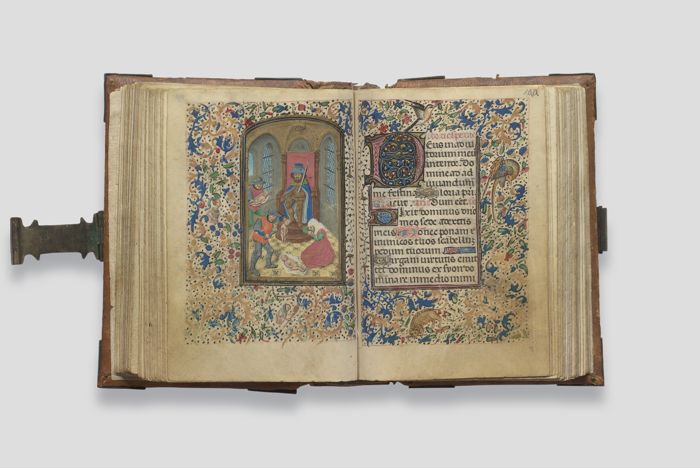 Deus in adiu
torium meu
intende. Do
mine ad ad
iuuandum
me festina Gloria
Dum esset.
Dixit dominus dno
meo sede a dextris
meis Donec ponam i
nimicos tuos scabellu
pedum tuorum
Virgam virtutis emit
tet dominus ex syon do
minare in medio inimi